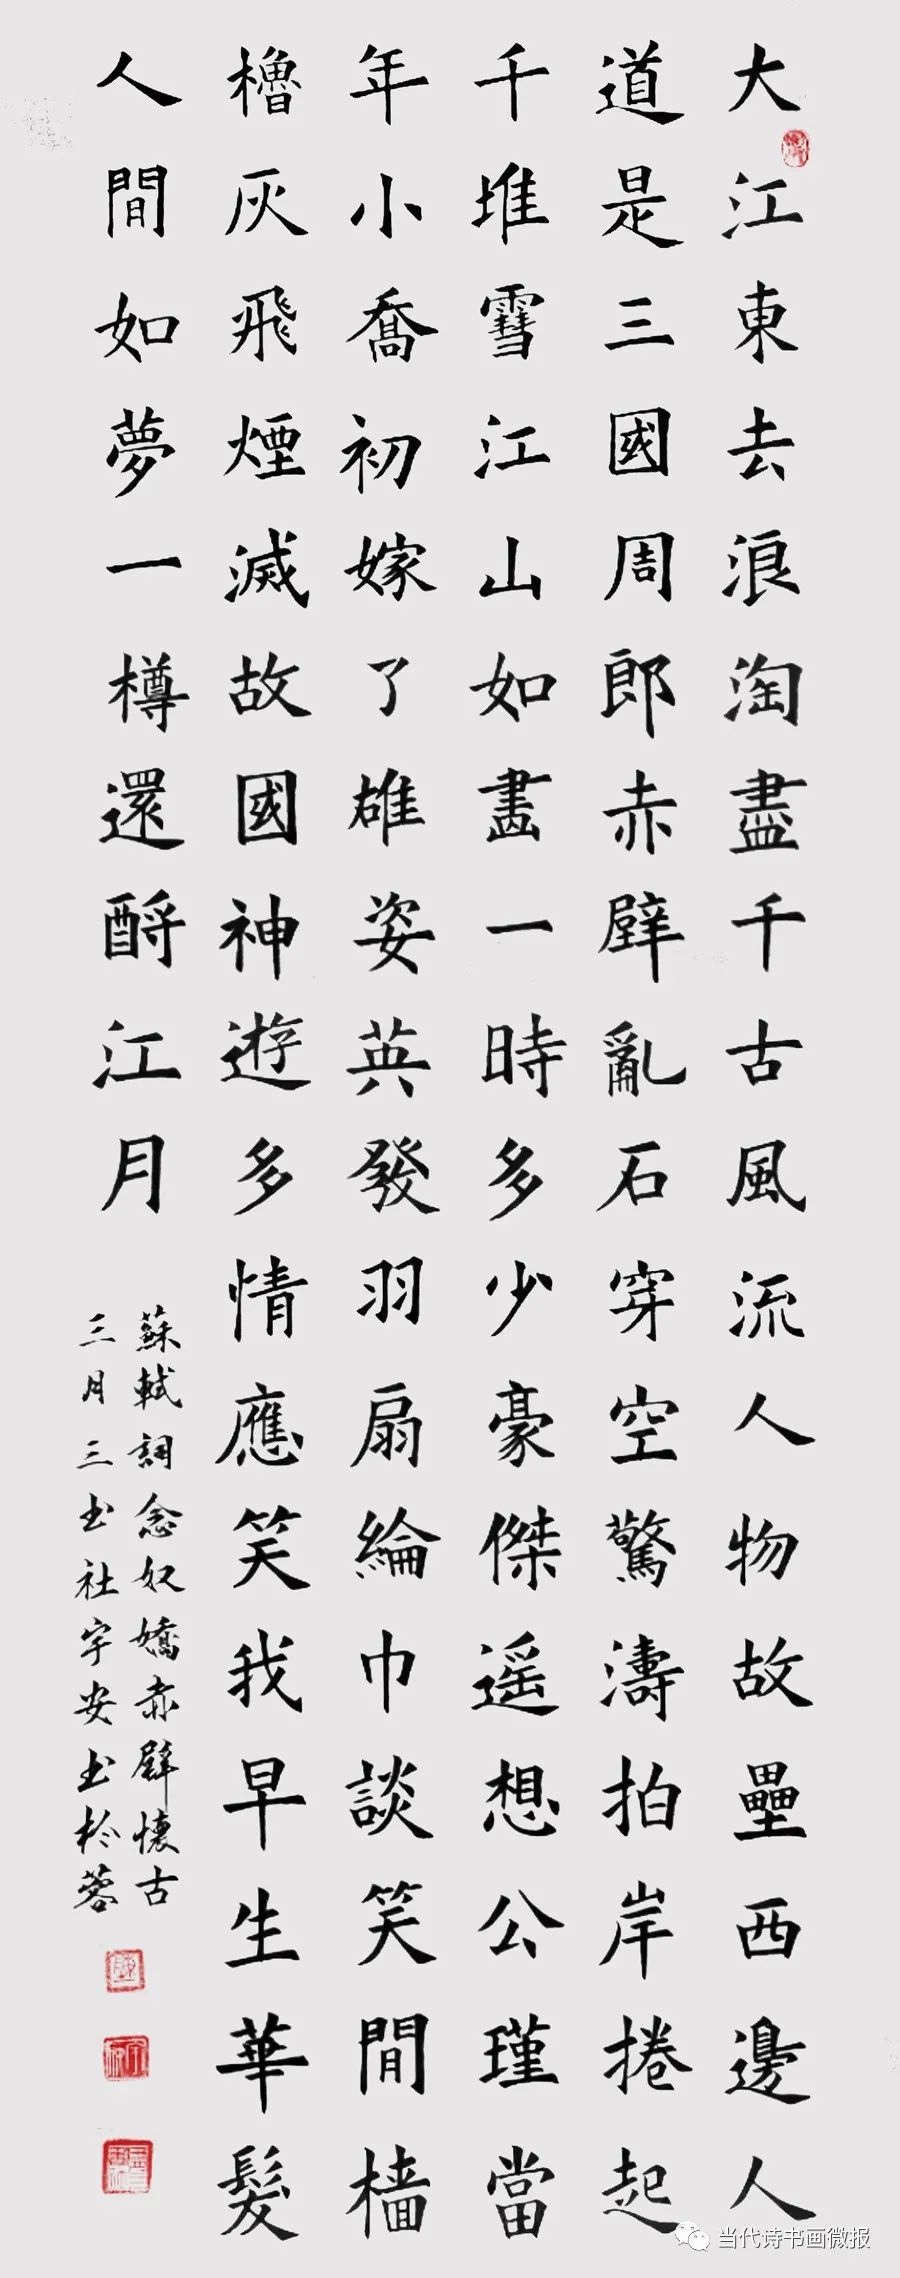 大江東去浪淘盡千古風流人物故壘西邊人
道是三國周郎赤壁亂石穿空驚濤拍岸捲起
千堆雪江山如畫一時多少豪傑遥想公瑾當
年小喬初嫁了雄姿英發羽扇綸巾談笑間檣
櫓灰飛煙滅故國神遊多情應笑我早生華髮
人間如夢一樽還酹江月
蘇軾詞念奴嬌赤壁懷古
三月三书社宇安书於蓉
当代诗书画微报